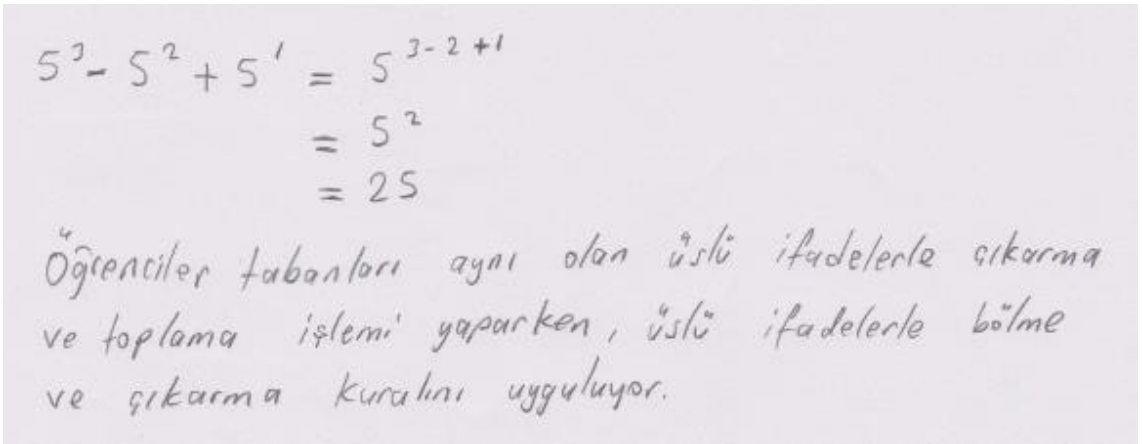 5³ - 5² + 5¹ = 5³⁻²⁺¹
= 5²
= 25
Öğrenciler tabanları aynı olan üslü ifadelerle çıkarma
ve toplama işlemi yaparken, üslü ifadelerle bölme
ve çıkarma kuralını uyguluyor.